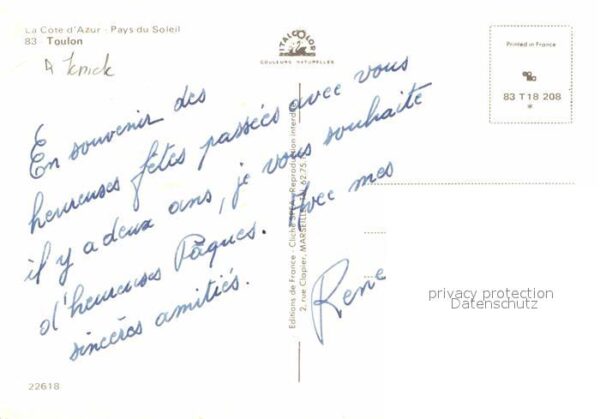 La Côte d'Azur - Pays du Soleil
83 Toulon
ITALCOLOR
COULEURS NATURELLES
Printed in France
83 T 18 208
En souvenir des
heureuses fêtes passées avec vous
il y a deux ans, je vous souhaite
d'heureuses Pâques. Avec mes
sincères amitiés.
René
Editions de France - Cliché SPEA - Reproduction interdite
2, rue Clapier, MARSEILLE
privacy protection
Datenschutz
22618